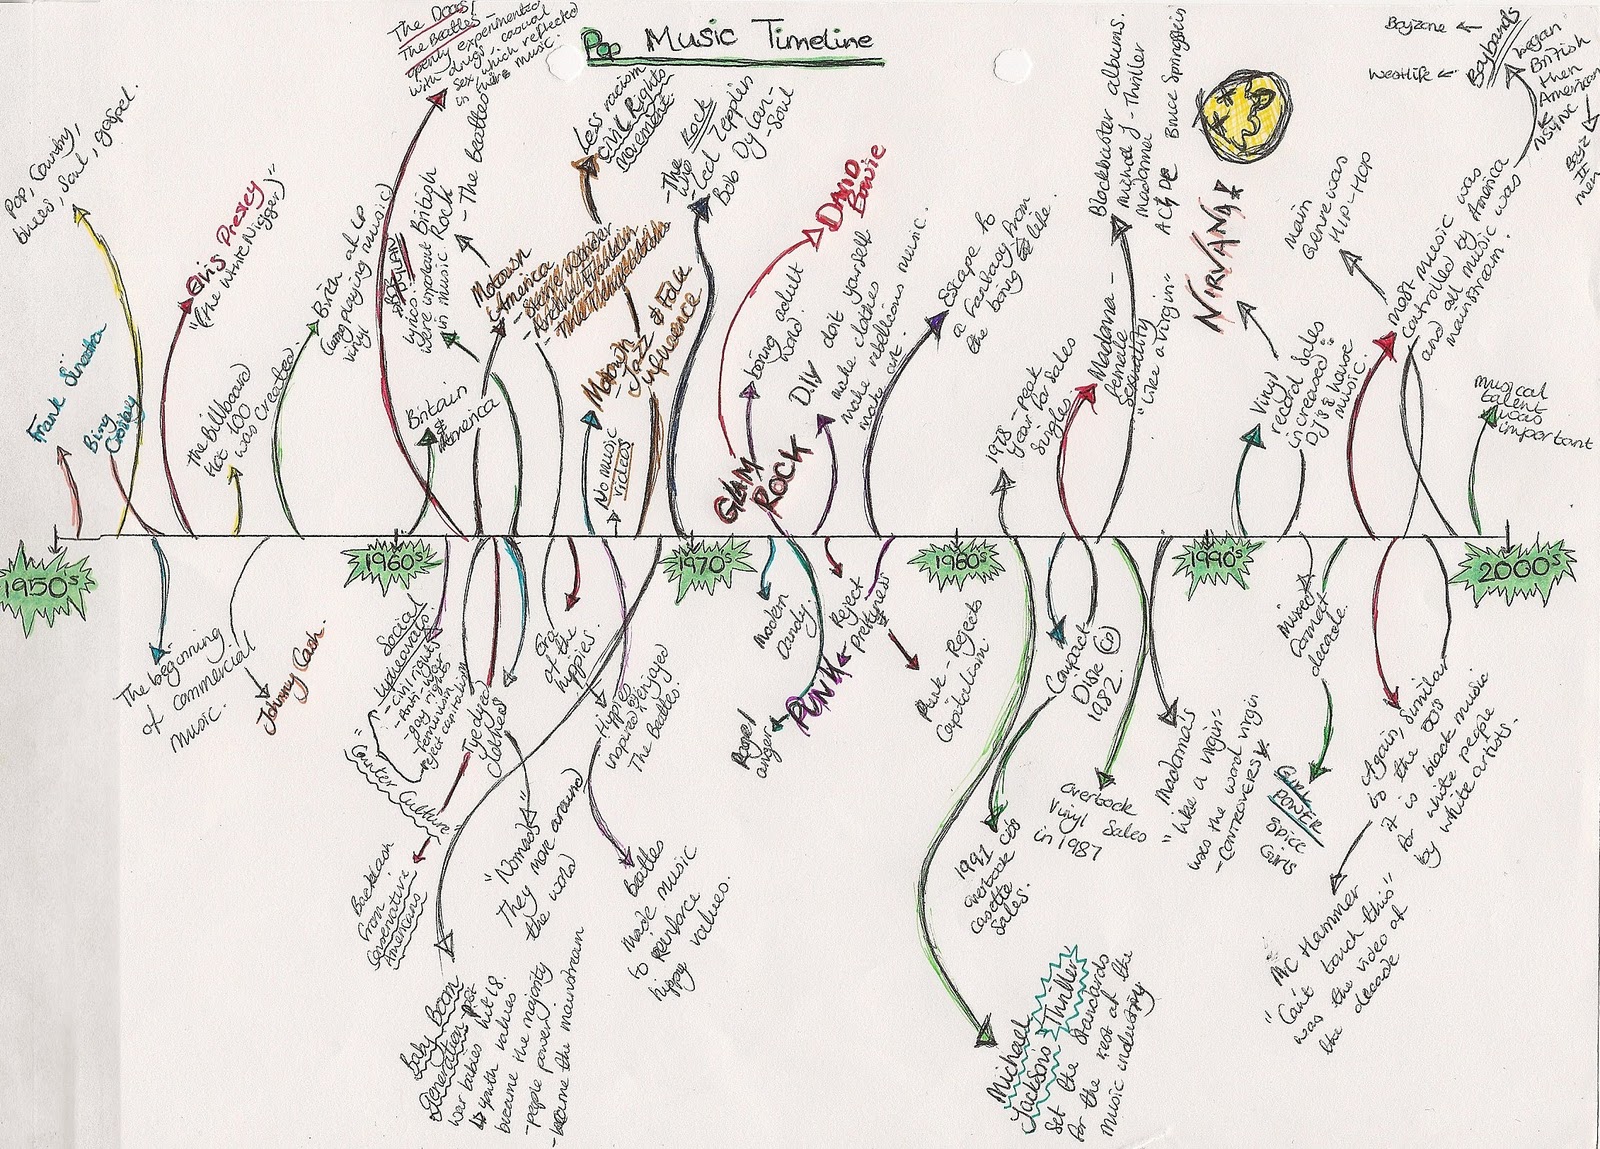 Pop Music Timeline
Pop, Country,
blues, Soul, gospel.
Frank Sinatra
Bing
Crosby
Elvis Presley
"(the White Nigger)"
The Billboard
Hot 100
was created.
Birth of LP
(long playing music)
vinyl
The Doors/
The Beatles -
openly experimented
with drugs, casual
sex, which reflected
in their music.
- The Beatles
DYLAN
Lyrics
were important
in music
British
Rock
Britain
&
America
Motown
America
Less racism
Civil Rights
movement.
Motown
- Jazz & Folk
influence
No music
videos
Rock
- The Who
- Led Zepplin
Bob Dylan
- Soul
GLAM
ROCK
DAVID
Bowie
boring adult
world.
D.I.Y don't yourself
make clothes
make rebellious music.
make art.
Escape to
a fantasy from
the boring life.
1978 - peak
year for sales
singles
Madonna -
female
sexuality
"Like a Virgin"
Blockbuster albums.
Micheal J - Thriller
Madonna
AC/DC
Bruce Springstein
NIRVANA
Vinyl
record sales
increased
DJ's & House
music.
Main
Genre was
Hip-Hop
Most music was
controlled by America
and all music was
mainstream.
Boyzone
Westlife
Boybands
began
British
then
American
NSYNC
Boyz
II
men
musical
talent
was
important
1950s
1960s
1970s
1980s
1990s
2000s
The beginning
of commercial
music.
Johnny Cash.
Social
upheavals
- civil rights
- Anti-war
- gay rights
- feminism
- reject capitalism
"Counter Culture"
Backlash
from
Conservative
Americans
Tyedyed
clothes
"Nomads"
They move around
the world
Era
of the
hippies.
Hippies
inspired & enjoyed
The Beatles.
Beatles
made music
to reinforce
hippy values.
Baby Boom
Generation - post
war babies hit 18.
↳ youth values
became the majority
- people power
- became the mainstream
Modern
Dandy.
Reject
prettyness
PUNK
Rage/
anger
Punk - Rejects
Capitalism
Compact
Disk (CD)
1982.
1991 CDs
overtook
casette
sales.
Overtook
Vinyl Sales
in 1987
Micheal
Jackson's Thriller
Set the standards
for the rest of the
music industry
Madonna's
"Like a virgin"
was the word virgin
- CONTROVERSY
mixed
format
decade.
Girl
POWER
Spice
Girls
Again, similar
to the 50s
it is black music
for white people
by white artists.
MC Hammer
"Can't touch this"
was the video of
the decade